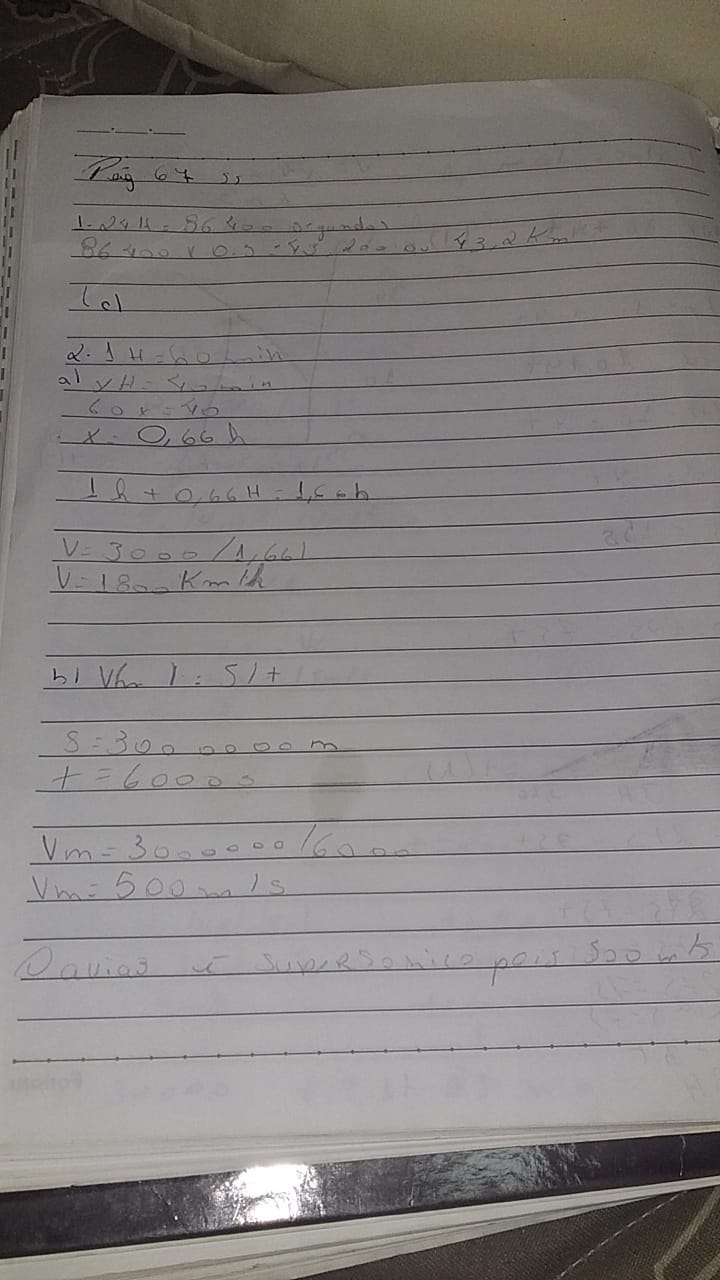 Pág 67 ss
1. 24H = 86 400 segundos
86 400 x 0.5 = 43 200 ou 43,2 Km
(c)
2. 1 H = 60 min
a) xH = 40 min
60x = 40
x = 0,66 h
1h + 0,66H = 1,66h
V = 3000/1,661
V = 1800 Km/h
b) Vm = S/t
S = 300 0000 m
t = 6000 s
Vm = 3000000/6000
Vm = 500 m/s
O avião é supersonico pois 500 m/s